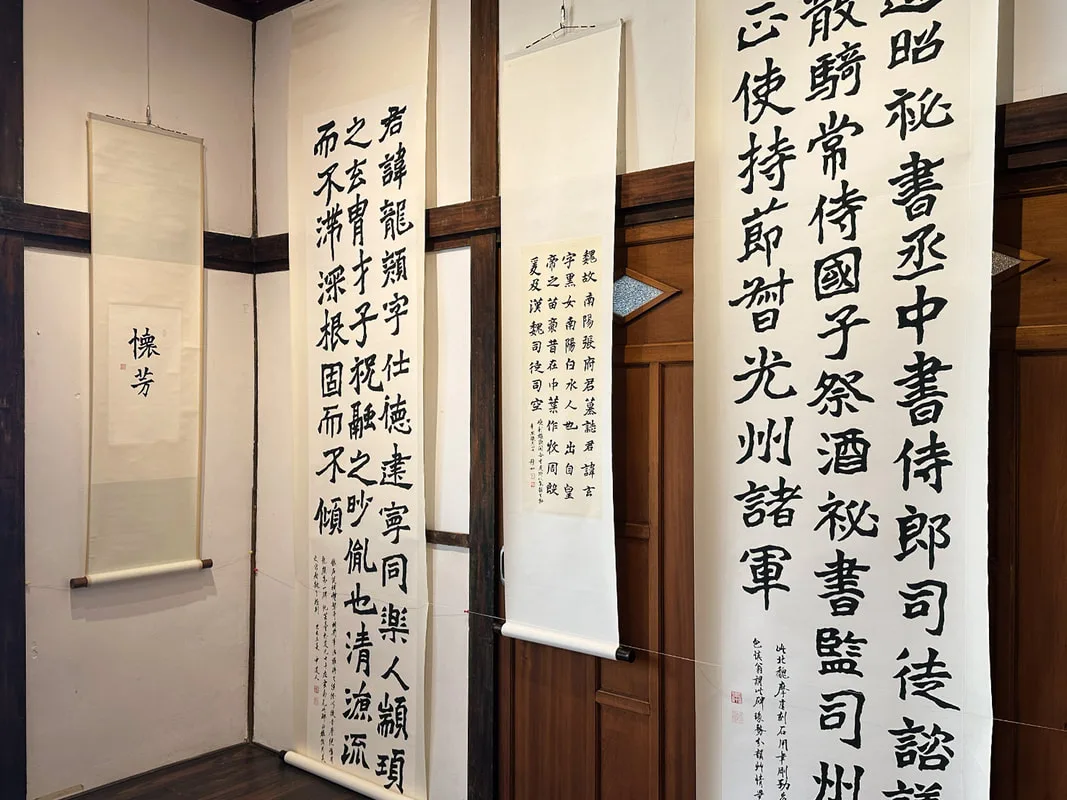 昭祕書丞中書侍郎司徒諮議
散騎常侍國子祭酒祕書監司州
正使持節督光州諸軍
此北魏摩崖刻石用筆剛勁
魏故南陽張府君墓誌君諱玄
字黑女南陽白水人也出自皇
帝之苗裔昔在中葉作牧周殷
爰及漢魏司徒司空
君諱龍顏字仕德建寧同樂人顓頊
之玄冑才子祝融之眇胤也清源流
而不滯深根固而不傾
懷芳